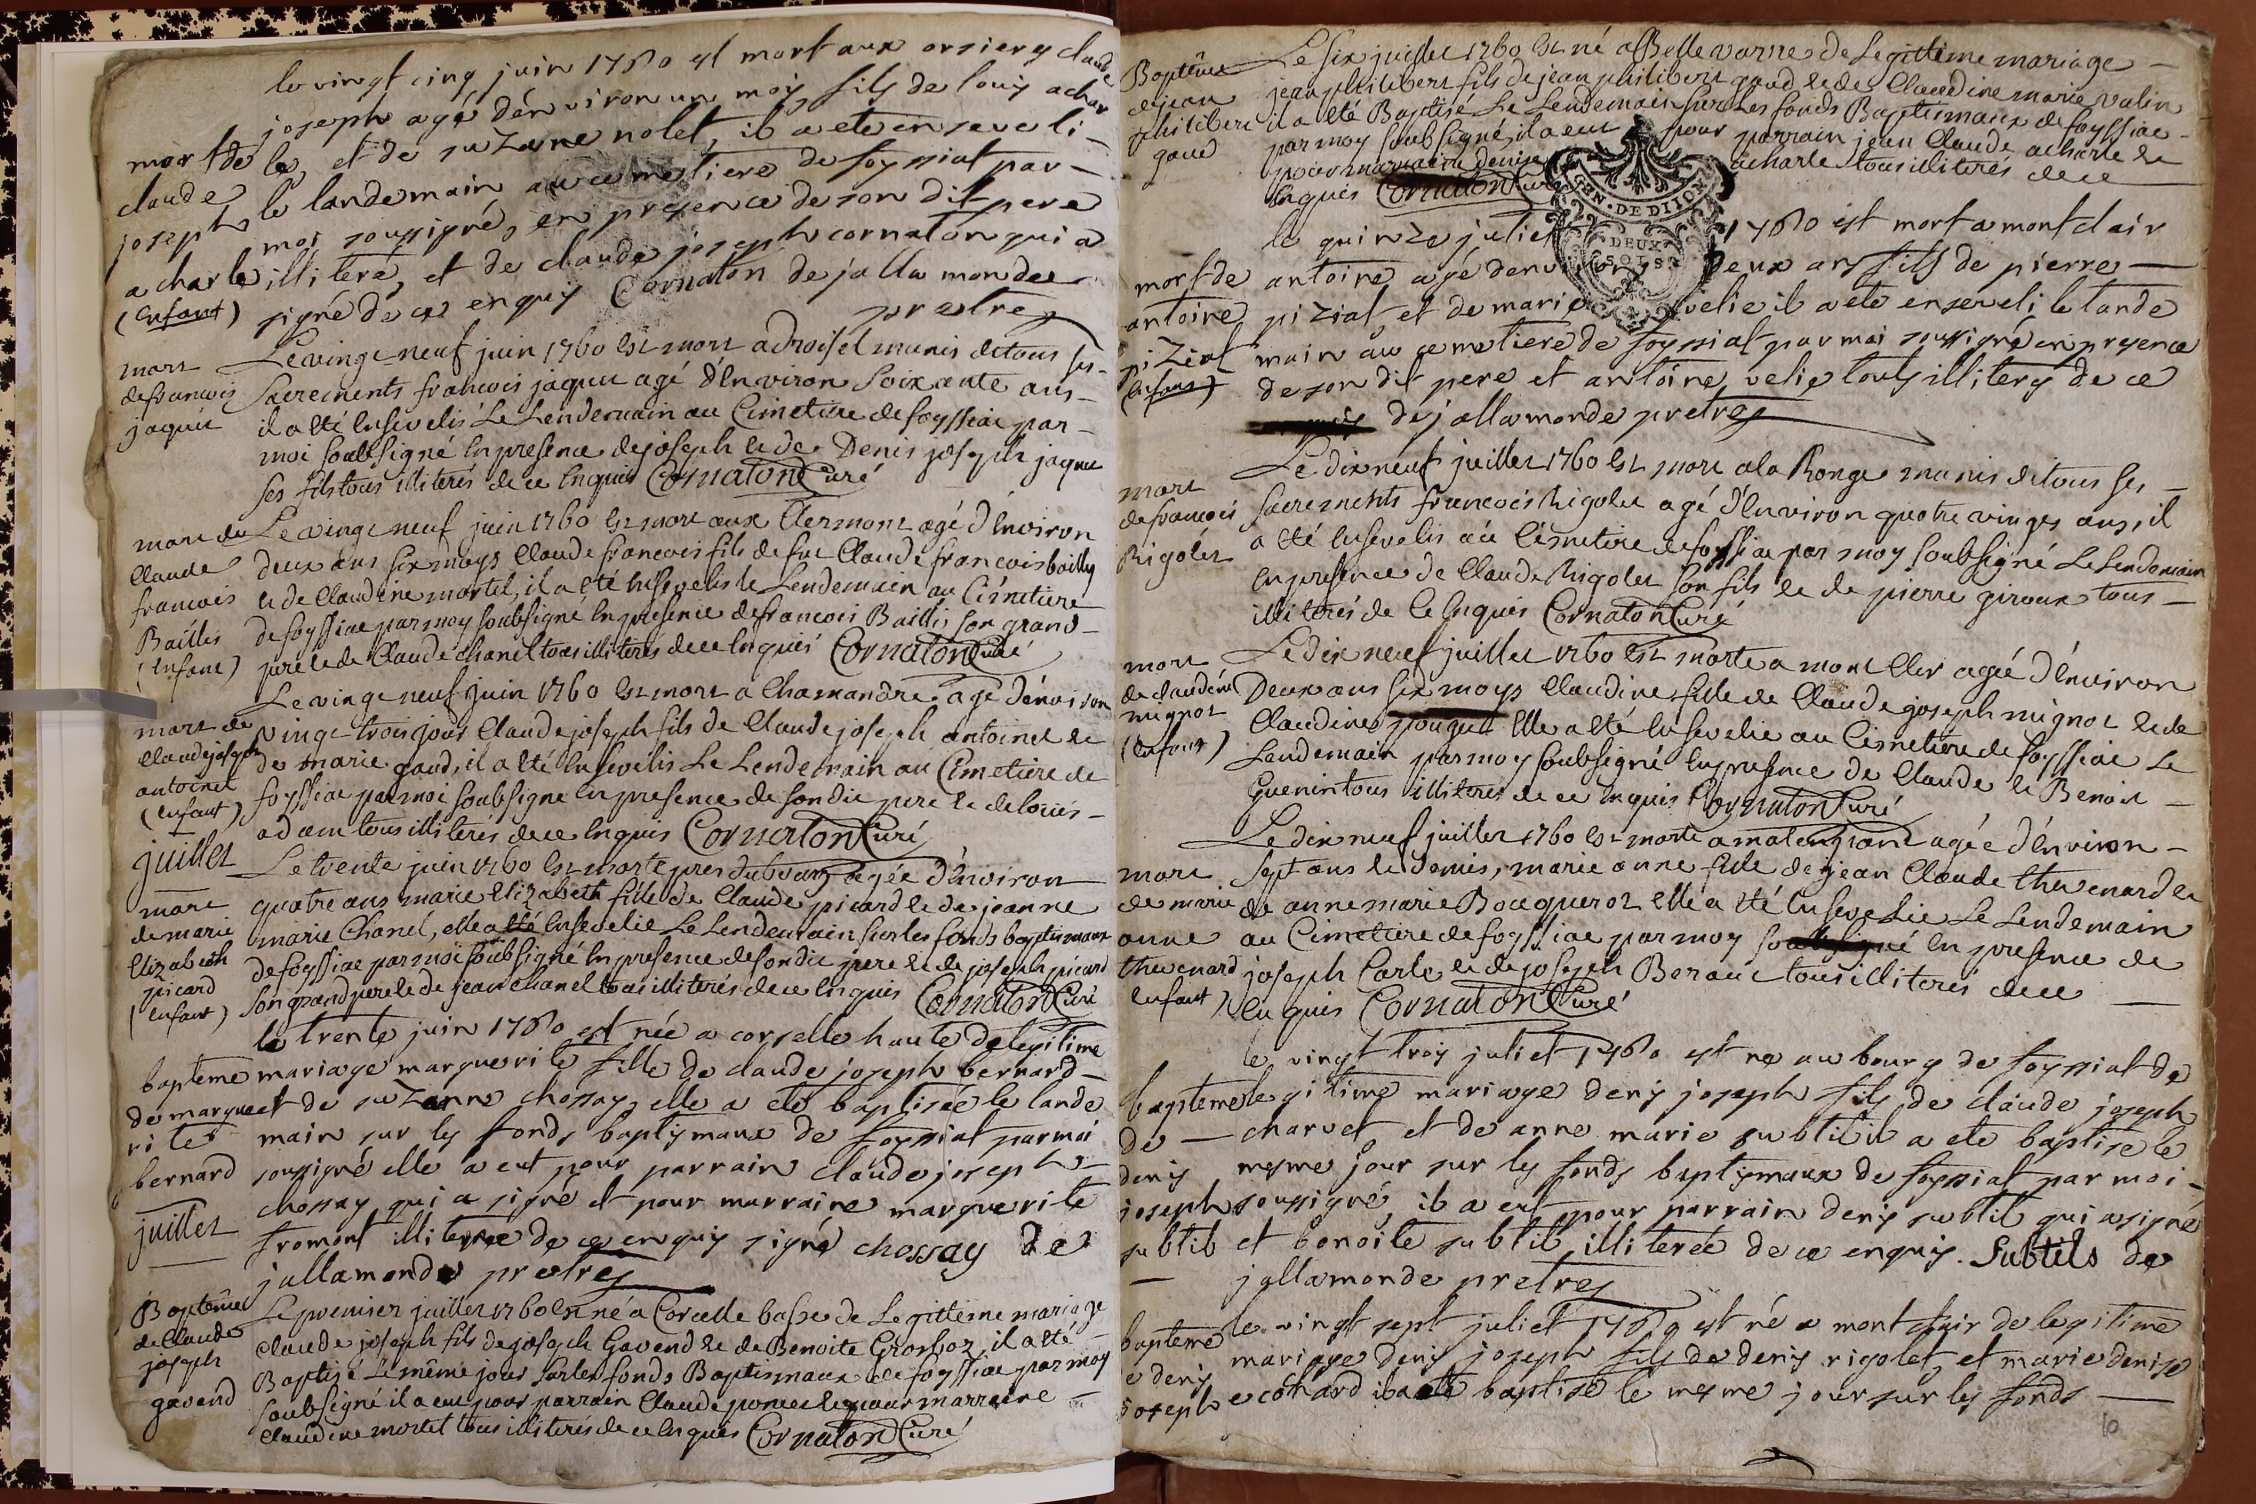 le vingt cinq juin 1760 est mort aux orsiery claude
joseph agé dénviron un moy fils de louy achar
mort de
claude
joseph
acharle
(enfant)
le, et de suzane nolet, il a ete enseveli
le landemain au cemetiere de foyssiat par
moi soussigné, en presence de son dit pere
illiteré, et de claude joseph cornaton qui a
signé de ce enquis Cornaton de jallamonde
prestre
mort
de francois
jaquu
Le vingt neuf juin 1760 est mort a droisel munis de tous ses
Sacrements francois jaquu agé d'Environ Soixante ans
il a été Ensevelis Le Lendemain au Cimetiere de foyssiat par
moi soubsigné En presence de joseph et de Denis joseph jaquu
ses fils tous illiterés de ce Enquis Cornaton Curé
mort de
Claude
francois
Baillis
(Enfant)
Le vingt neuf juin 1760 est mort aux Clermont agé d'Environ
deux ans six moys Claude francois fils de feu Claude francois bailly
et de Claudine mortel, il a été Ensevelis le Lendemain au Cimetiere
de foyssiat par moy soubsigné En presence de francois Baillis son grand
pere et de Claude chanel tous illiterés de ce Enquis Cornaton Curé
mort de
Claude joseph
antoinet
(Enfant)
Le vingt neuf juin 1760 est mort a Chamandre agé dénviron
vingt trois jours Claude joseph fils de Claude joseph antoinet et
de marie gaud, il a été Ensevelis Le Lendemain au Cimetiere de
foyssiat par moi soubsigné En presence de son dit pere et de louis
adam tous illiterés de ce Enquis Cornaton Curé
juillet
mort
de marie
Elizabeth
picard
(Enfant)
Le trente juin 1760 est morte pres du bourg agée d'Environ
quatre ans marie Elizabeth fille de Claude picard et de jeanne
marie Chanel, elle a été Ensevelie Le Lendemain sur les fonds baptismaux
de foyssiat par moi soubsigné En presence de son dit pere et de joseph picard
son grand pere et de jean chanel tous illiterés de ce Enquis Cornaton Curé
bapteme
de margue
rite
bernard
le trente juin 1760 est née a corselle haute de legitime
mariage marguerite fille de claude joseph bernard
et de suzanne chossay, elle a eté baptisée le lande
main sur ly fonds baptismaux de foyssiat par moi
soussigné elle a eut pour parrain claude joseph
chossay qui a signé et pour marraine marguerite
fromont illiterée de ce enquis signé chossay De
jallamonde prestre
juillet
Baptême
de Claude
joseph
gavend
Le premier juillet 1760 est né a Corcelle basse de Legittime mariage
Claude joseph fils de joseph Gavend et de Benoite Grosboz, il a été
Baptisé Le même jour sur les fonds Baptismaux de foyssiat par moy
soubsigné il a eu pour parrain Claude poncet et pour marraine
Claudine mortel tous illiterés de ce Enquis Cornaton Curé
Baptême
de jean
philibert
gaud
Le six juillet 1760 est né a Bellevavrne de Legittime mariage
jean philibert fils de jean philibert gaud et de Claudine marie valin
il a été Baptisé Le Lendemain sur Les fonds Baptismaux de foyssiat
par moy soubsigné, il a eut pour parrain jean Claude acharle et
pour marraine denise acharle tous illiterés de ce
Enquis Cornaton Curé
GEN. DE DIJON
DEUX
SOLS
mort de
antoine
piziat
(Enfant)
le quinze juliet 1760 est mort a montclair
antoine agé denviron deux ans fils de pierre
piziat et de marie velie il a ete enseveli le lande
main au cemetiere de foyssiat par moi soussigné en presence
de son dit pere et antoine velie touts illitery de ce
dejallamonde pretre
mort
de francois
Rigolet
Le dix neuf juillet 1760 est mort a la Ronge munis de tous ses
Sacrements francois Rigolet agé d'Environ quatre vingts ans, il
a été Ensevelis au Cémetiere de foyssiat par moy soubsigné Le Lendemain
En presence de Claude Rigolet son fils et de pierre giroux tous
illiterés de Ce Enquis Cornaton Curé
mort
de claudine
mignot
(Enfant)
Le dix neuf juillet 1760 est morte a mont Cler agée d'Environ
Deux ans six moys Claudine fille de Claude joseph mignot et de
Claudine pouquet Elle a été Ensevelie au Cimetiere de foyssiat Le
Lendemain par moy soubsigné En presence de Claude et Benoit
Guenin tous illiterés de ce Enquis Cornaton Curé
mort
de marie
anne
thevenard
(Enfant)
Le dix neuf juillet 1760 est morte a matengrane agée d'Environ
Sept ans et Demis, marie anne fille de jean Claude thevenard et
de anne marie Bouquerot Elle a été Ensevelie Le Lendemain
au Cimetiere de foyssiat par moy soubsigné En presence de
joseph Carle et de joseph Beraut tous illiterés de ce
Enquis Cornaton Curé
bapteme
de
deny
joseph
subtil
le vingt troy juliet 1760 est né au bourg de foyssiat de
legitime mariage deny joseph fils de claude joseph
charvet et de anne marie subtil il a eté baptisé le
mesme jour sur ly fonds baptismaux de foyssiat par moi
soussigné, il a eut pour parrain deny subtil qui a signé
et benoite subtil illiterée de ce enquis. Subtils de
jallamonde pretre
bapteme
e deny
joseph
le vingt sept juliet 1760 est né a mont clair de legitime
mariage deny joseph fils de deny rigolet et marie denise
ecochard il a eté baptisé le mesme jour sur ly fonds
10